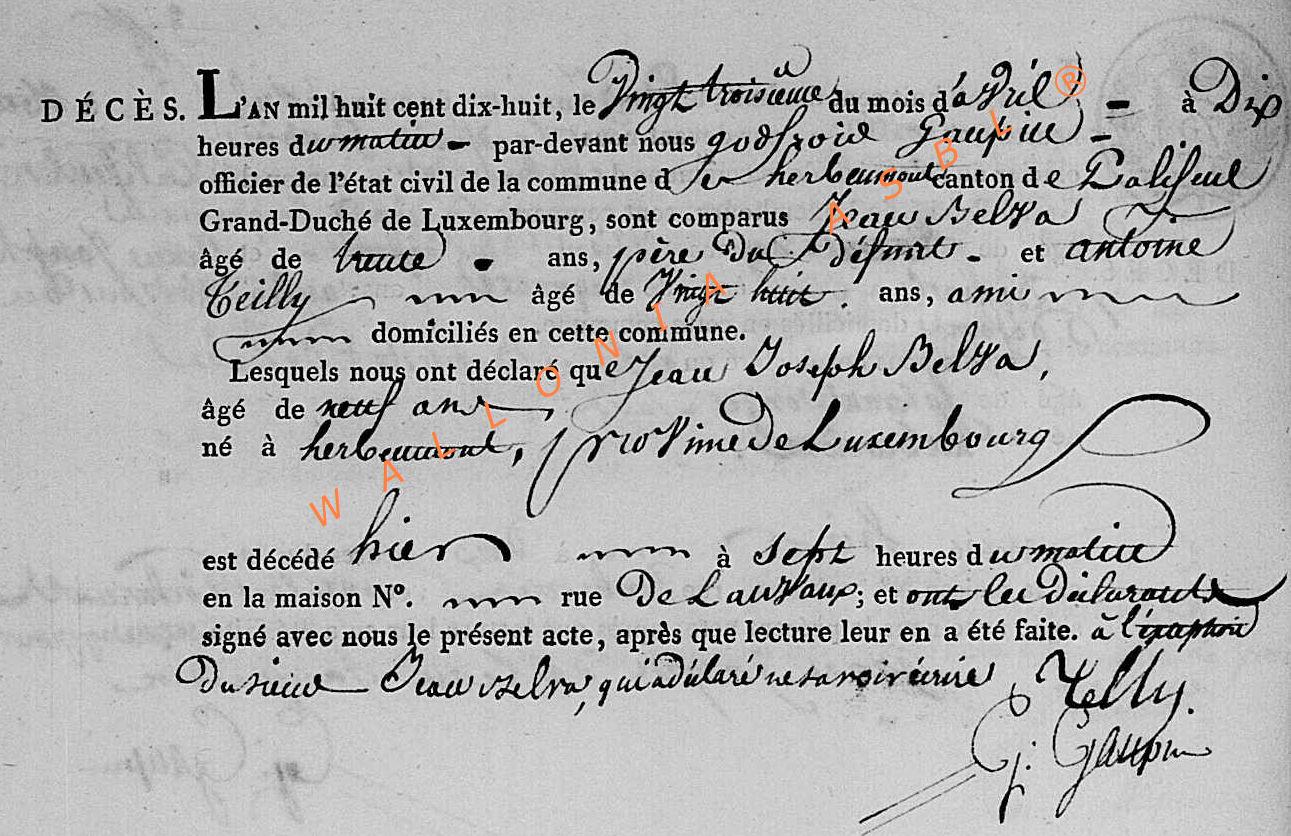 DÉCÈS. L'AN mil huit cent dix-huit, le Vingt troisième du mois d'avril à Dix
heures du matin par-devant nous godfroid Gaupin
officier de l'état civil de la commune d'herbeumont canton de Paliseul
Grand-Duché de Luxembourg, sont comparus Jean Belva
âgé de trente ans, père Du Défunt et antoine
Teilly âgé de Vingt huit ans, ami
domiciliés en cette commune.
Lesquels nous ont déclaré que Jean Joseph Belva,
âgé de neuf ans
né à herbeumont, province De Luxembourg
est décédé hier à sept heures du matin
en la maison N°. rue De Lauvaux; et ont les Déclarants
signé avec nous le présent acte, après que lecture leur en a été faite. à l'exception
Du sieur Jean Belva, qui a déclaré ne savoir écrire Telly.
G: Gaupin
WALLONIA ASBL ®